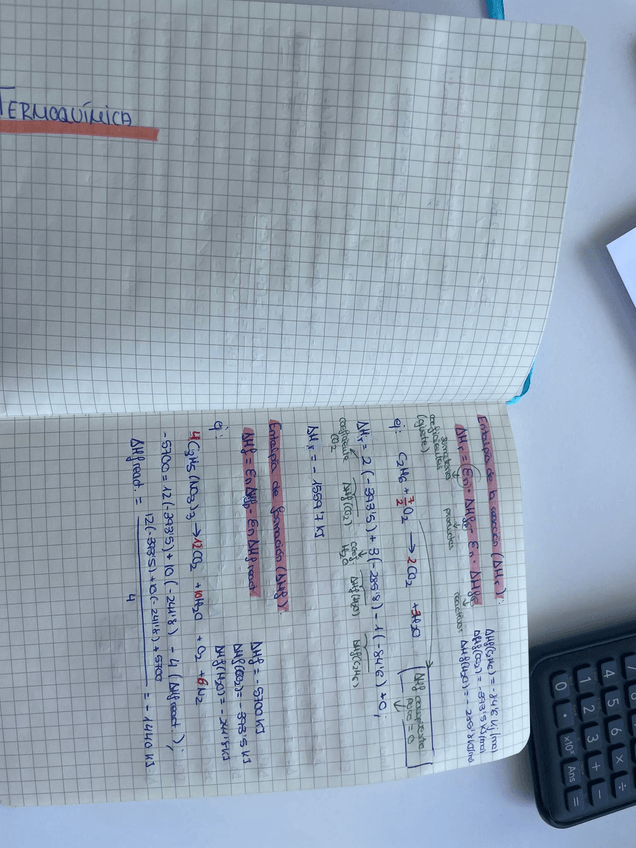 TERMOQUÍMICA
Entalpía de la reacción (ΔHr):
ΔHr = Σn · ΔHf - Σn · ΔHf
coeficiente (ajuste) sumatorio productos reactivos
ΔHf(C2H6) = -84'6 kJ/mol
ΔHf(CO2) = -393'5 kJ/mol
ΔHf(H2O) = -285'8 kJ/mol
ej: C2H6 + 7/2 O2 → 2CO2 + 3H2O
ΔHf compuesto puro = 0
ΔHr = 2(-393'5) + 3(-285'8) - 1(-84'6) + 0;
coeficiente CO2 ΔHf(CO2) coef H2O ΔHf(H2O) ΔHf(C2H6)
ΔHr = -1559'7 kJ
Entalpía de formación (ΔHf):
ΔHf = Σn ΔHfp - Σn ΔHf react
ΔHf = -5700 kJ
ΔHf(CO2) = -393'5 kJ
ΔHf(H2O) = -241'8 kJ
ej:
4C3H5(NO3)3 → 12CO2 + 10H2O + O2 + 6N2
-5700 = 12(-393'5) + 10(-241'8) - 4(ΔHf react);
ΔHf react. = 12(-393'5) + 10(-241'8) + 5700 / 4 = -1440 kJ
0 . ×10ˣ Ans =
1 2 3 + -
4 5 6 × ÷